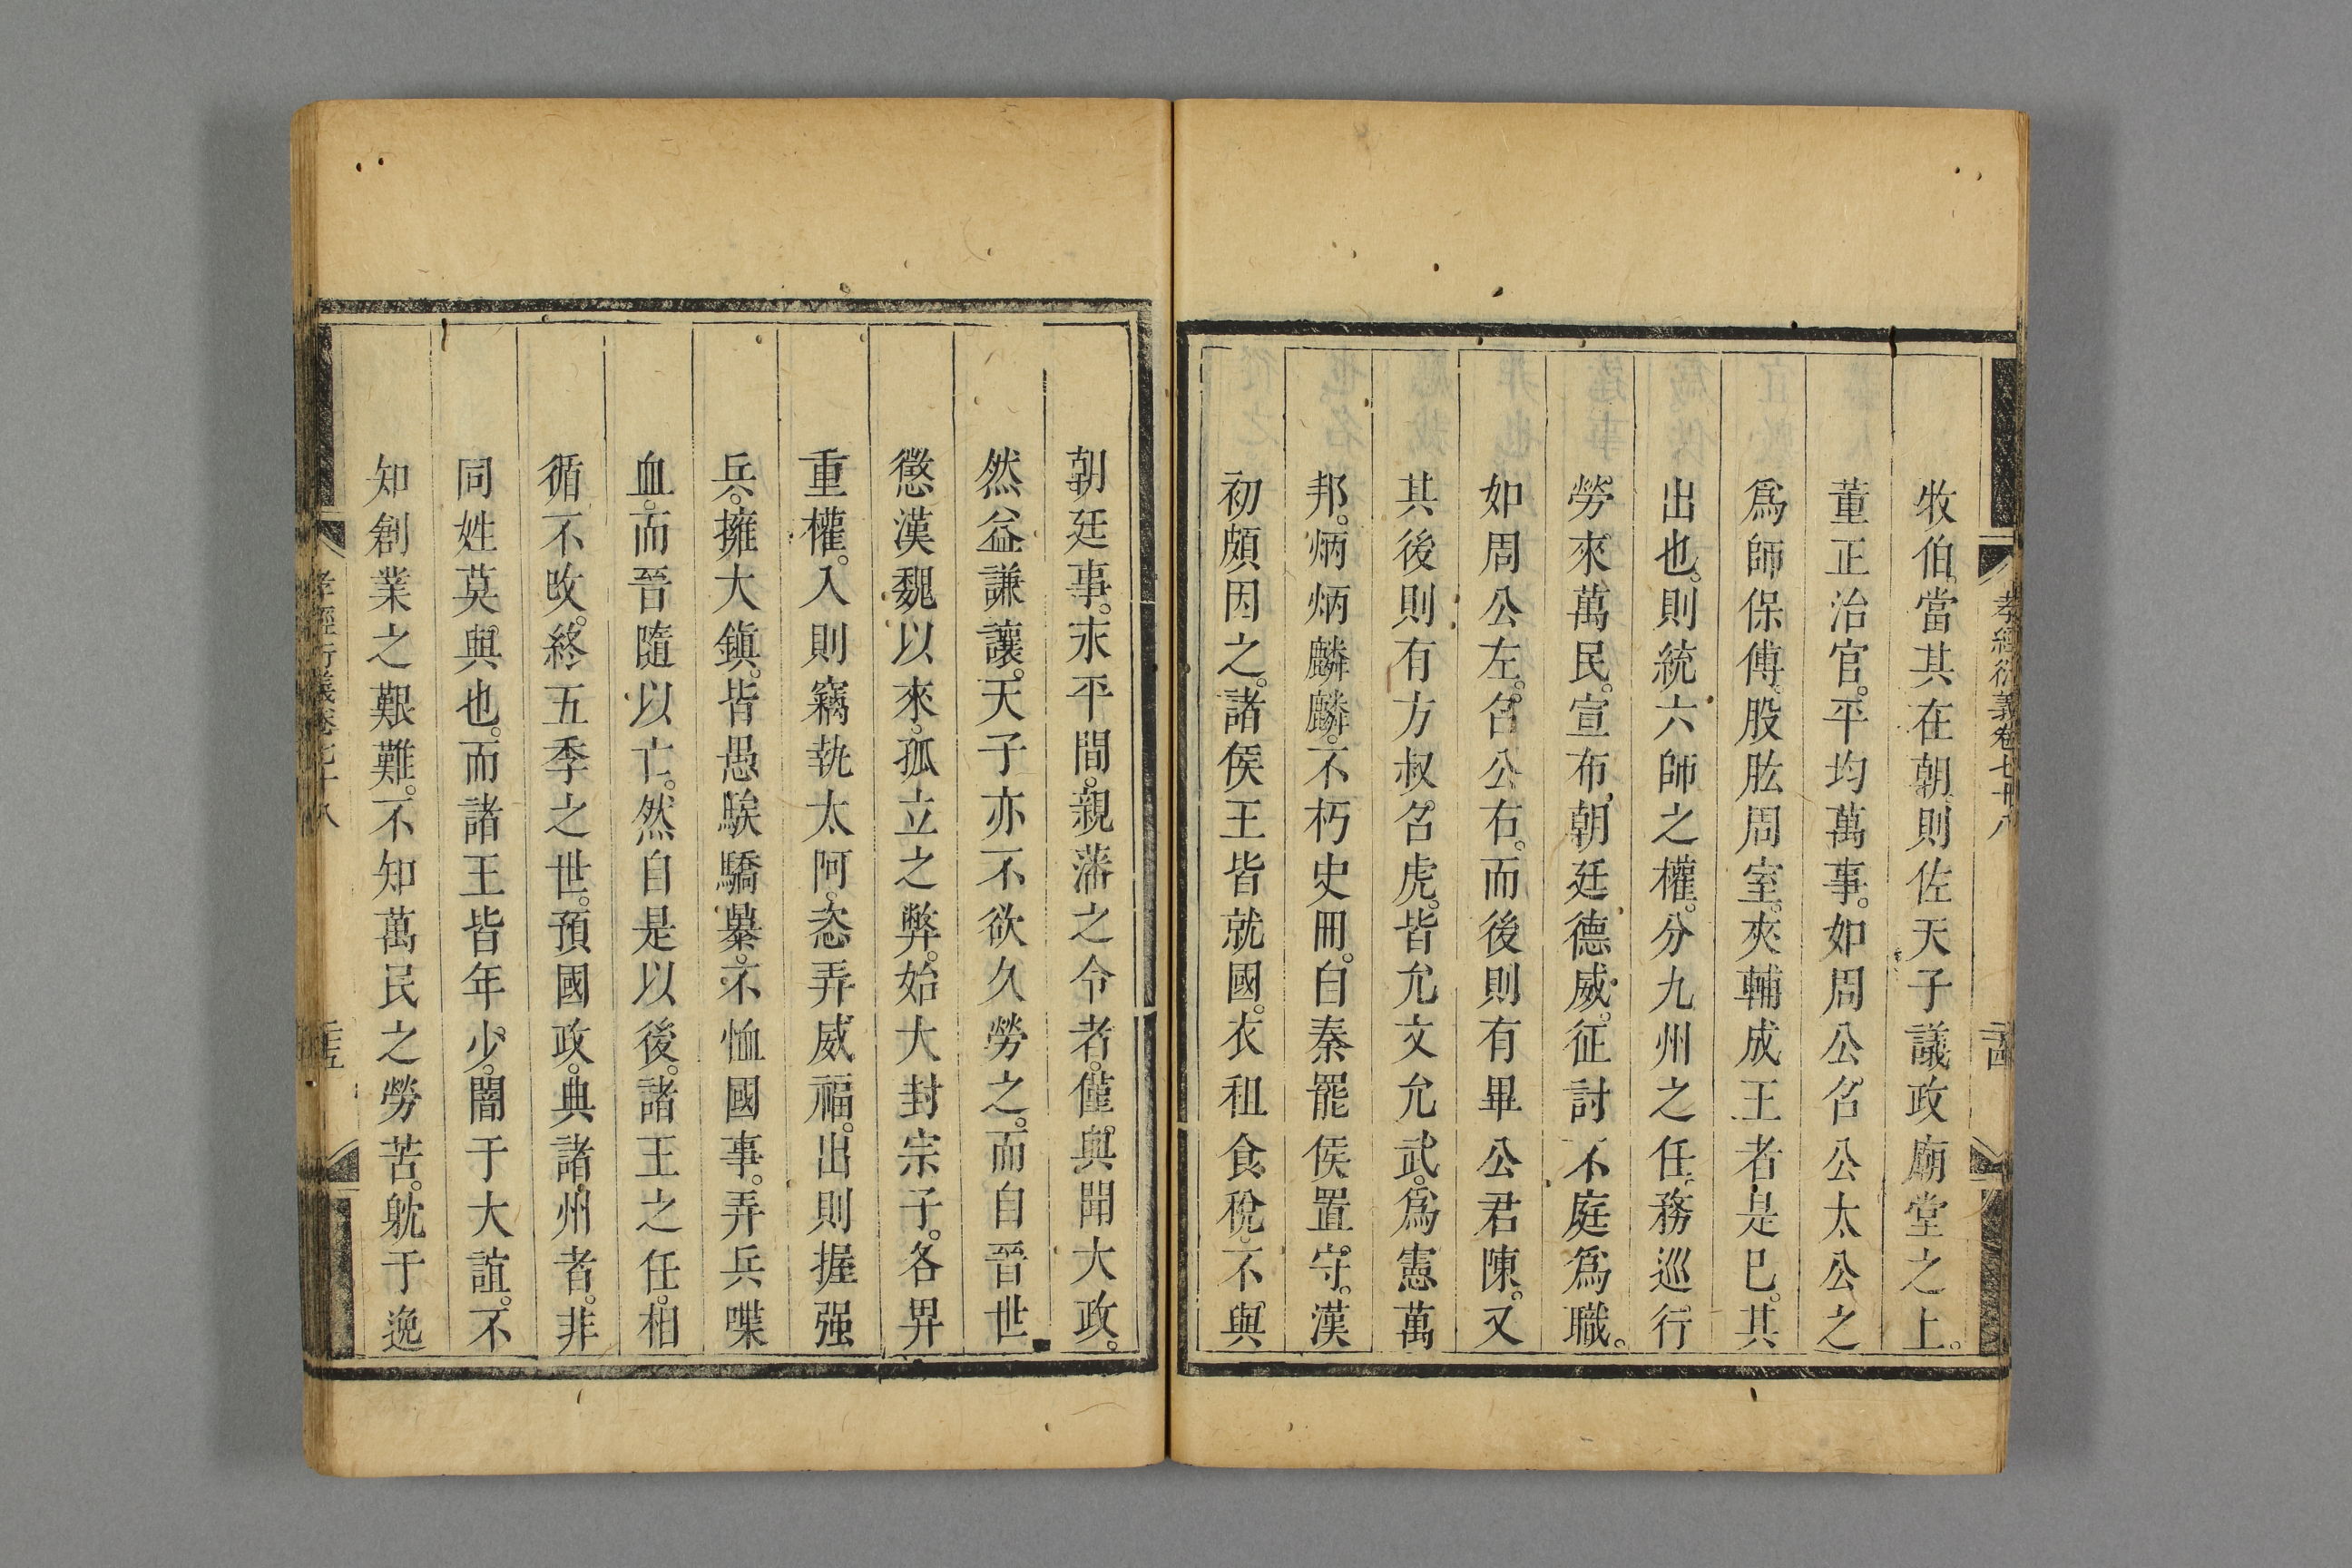 孝經衍義卷七十八
牧伯。當其在朝。則佐天子議政廟堂之上。
董正治官。平均萬事。如周公召公太公之
爲師保傅。股肱周室。夾輔成王者是已。其
出也。則統六師之權。分九州之任。務巡行
勞來萬民。宣布朝廷德威。征討不庭爲職。
如周公左。召公右。而後則有畢公君陳。又
其後則有方叔。召虎。皆允文允武。爲憲萬
邦。炳炳麟麟。不朽史冊。自秦罷侯置守。漢
初頗因之。諸侯王皆就國。衣租食稅。不與
朝廷事。永平間。親藩之令者。僅與聞大政。
然益謙讓。天子亦不欲久勞之。而自晉世
懲漢魏以來。孤立之弊。始大封宗子。各畀
重權。入則竊執太阿。恣弄威福。出則握强
兵。擁大鎭。皆愚騃驕暴。不恤國事。弄兵喋
血。而晉隨以亡。然自是以後。諸王之任。相
循不改。終五季之世。預國政。典諸州者。非
同姓莫與也。而諸王皆年少。闇于大誼。不
知創業之艱難。不知萬民之勞苦。躭于逸
孝經衍義卷七十八